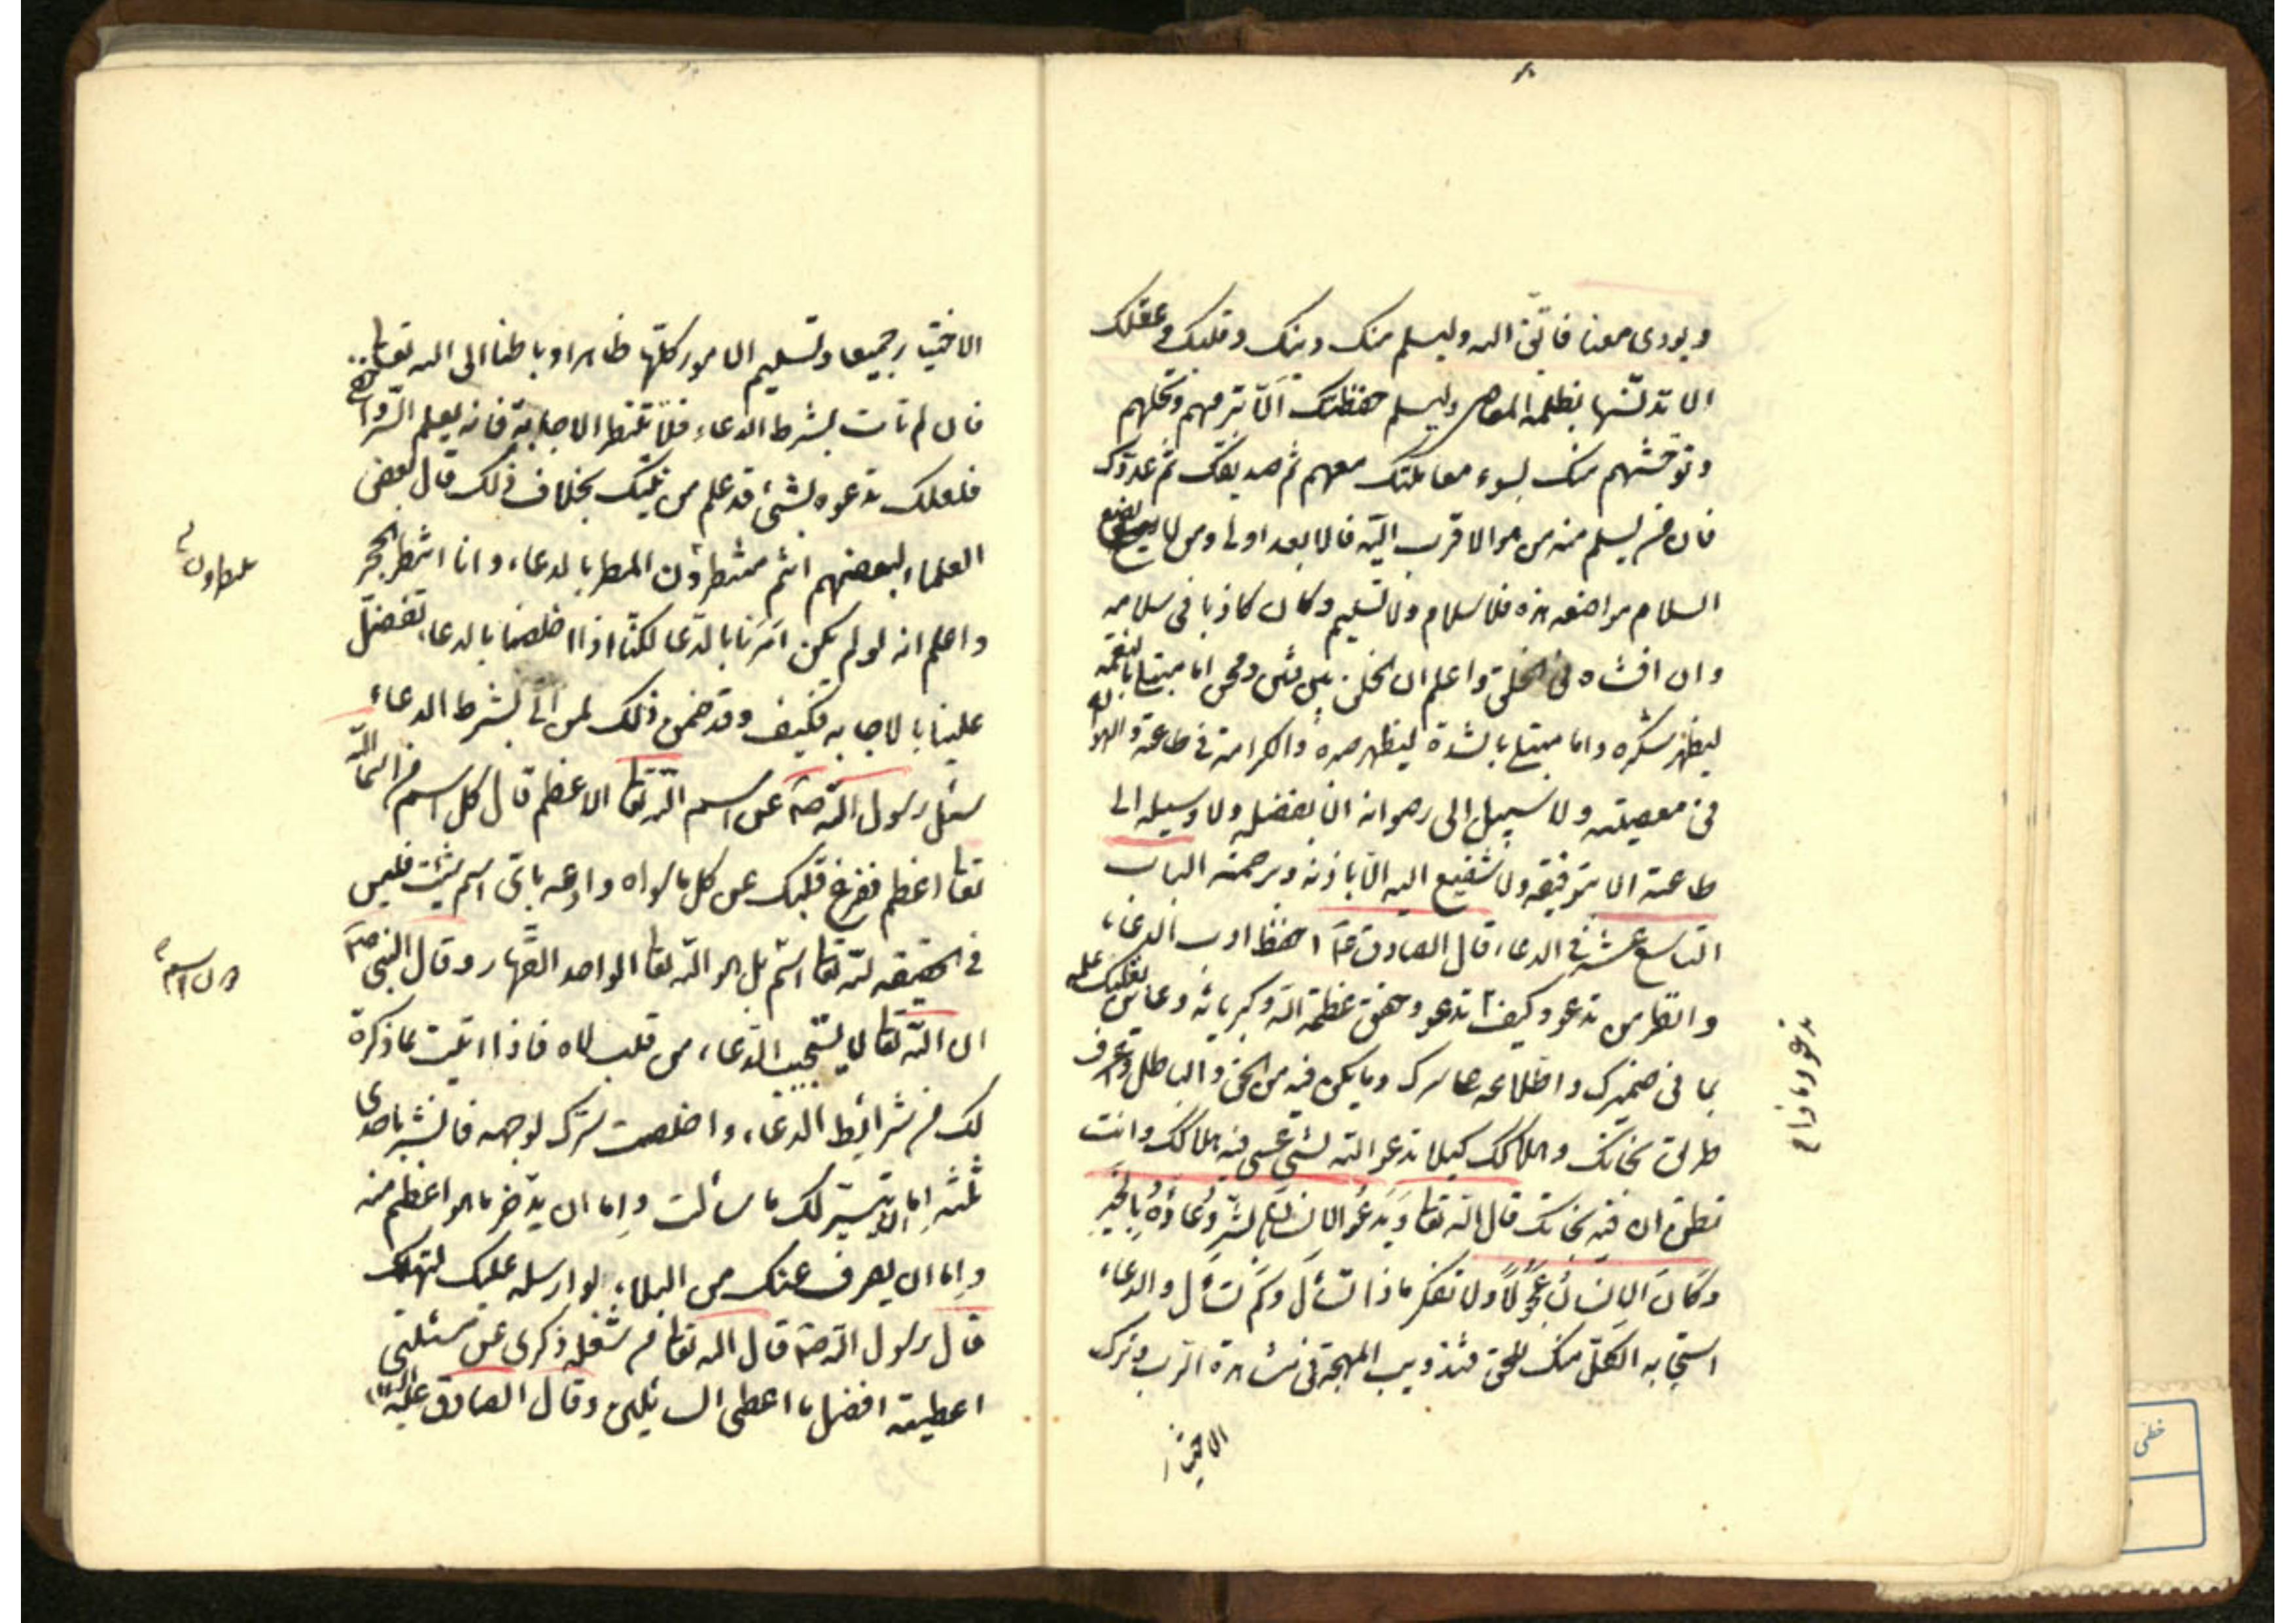 ويودى معنا فاتق الله وليسلم منك دينك وقلبك وعقلك
الا تدنسها بظلمه المعاصى وليسلم حفظتك الا تبرمهم وتملهم
وتوحشهم منك بسوء معاملتك معهم ثم صديقك ثم عدوك
فان من لم يسلم منه من هو الاقرب اليه فالابعد اولى ومن لا يضع
السلام مواضعه هذه فلا سلام ولا تسليم وكان كاذبا فى سلامه
وان افشاه فى الخلق واعلم ان الخلق بين فتن ومحن اما مبتلى بالنعمه
ليظهر شكره واما مبتلى بالشدة ليظهر صبره والكرامة فى طاعته والهوان
فى معصيته ولا سبيل الى رضوانه الا بفضله ولا وسيله الى
طاعته الا بتوفيقه ولا شفيع اليه الا باذنه وبرحمته الباب
التاسع عشر فى الدعاء قال الصادق ع احفظ ادب الدعاء
وانظر من تدعو وكيف تدعو وحقق عظمة الله وكبريائه وعاين بقلبك علمه
بما فى ضميرك واطلاعه على سرك وما يكن فيه من الحق والباطل واعرف
طرق نجاتك وهلاكك كيلا تدعو الله بشئ عسى فيه هلاكك وانت
تظن ان فيه نجاتك قال الله تعا وَيَدْعُ الانسان بالشر دُعَاؤهُ بالخَيرِ
وكَانَ الاِنْسَانُ عَجُولًا ولا تفكر ماذا تسئل وكم تسئل والدعاء
استجابه الكل منك للحق وتذويب المهجة فى مشاهدة الرب وترك
الاختيار
تدعو ولماذا
الاختيار جميعا وتسليم الامور كلها ظاهرا وباطنا الى الله تعالى
فان لم تات بشرط الدعاء فلا تنتظر الاجابة فانه يعلم السر واخفى
فلعلك تدعوه بشئ قد علم من نيتك بخلاف ذلك قال بعض
العلماء لبعضهم انتم تنتظرون المطر بالدعاء وانا انتظر الحجر
واعلم انه لو لم يكن امَرَنا بالدّعا لكنا اذا اخلصنا بالدعاء تفضل
علينا بالاجابه فكيف وقد ضمن ذلك لمن اتى بشرط الدعاء
سئل رسول الله ص عن اسم الله تعا الاعظم قال كل اسم من اسماء الله
تعا اعظم ففرغ قلبك عن كل ما سواه وادعه باى اسم شئت فليس
فى الحقيقه لله تعا اسم بل هو الله تعا الواحد القهار وقال النبى ص
ان الله تعا لا يستجيب الدعاء من قلب لاه فاذا اتيت بما ذكرة
لك من شرائط الدعاء واخلصت سرك لوجهه فابشر باحدى
ثلثه اِما ان يتيسر لك ما سالت واِما ان يدّخر ما هو اعظم منه
واِما ان يصرف عنك من البلاء لو ارسله عليك لتهلك
قال رسول الله ص قال الله تعا من شغله ذكرى عن مسئلتى
اعطيته افضل ما اعطى السائلين وقال الصادق عليه السلام
خطى